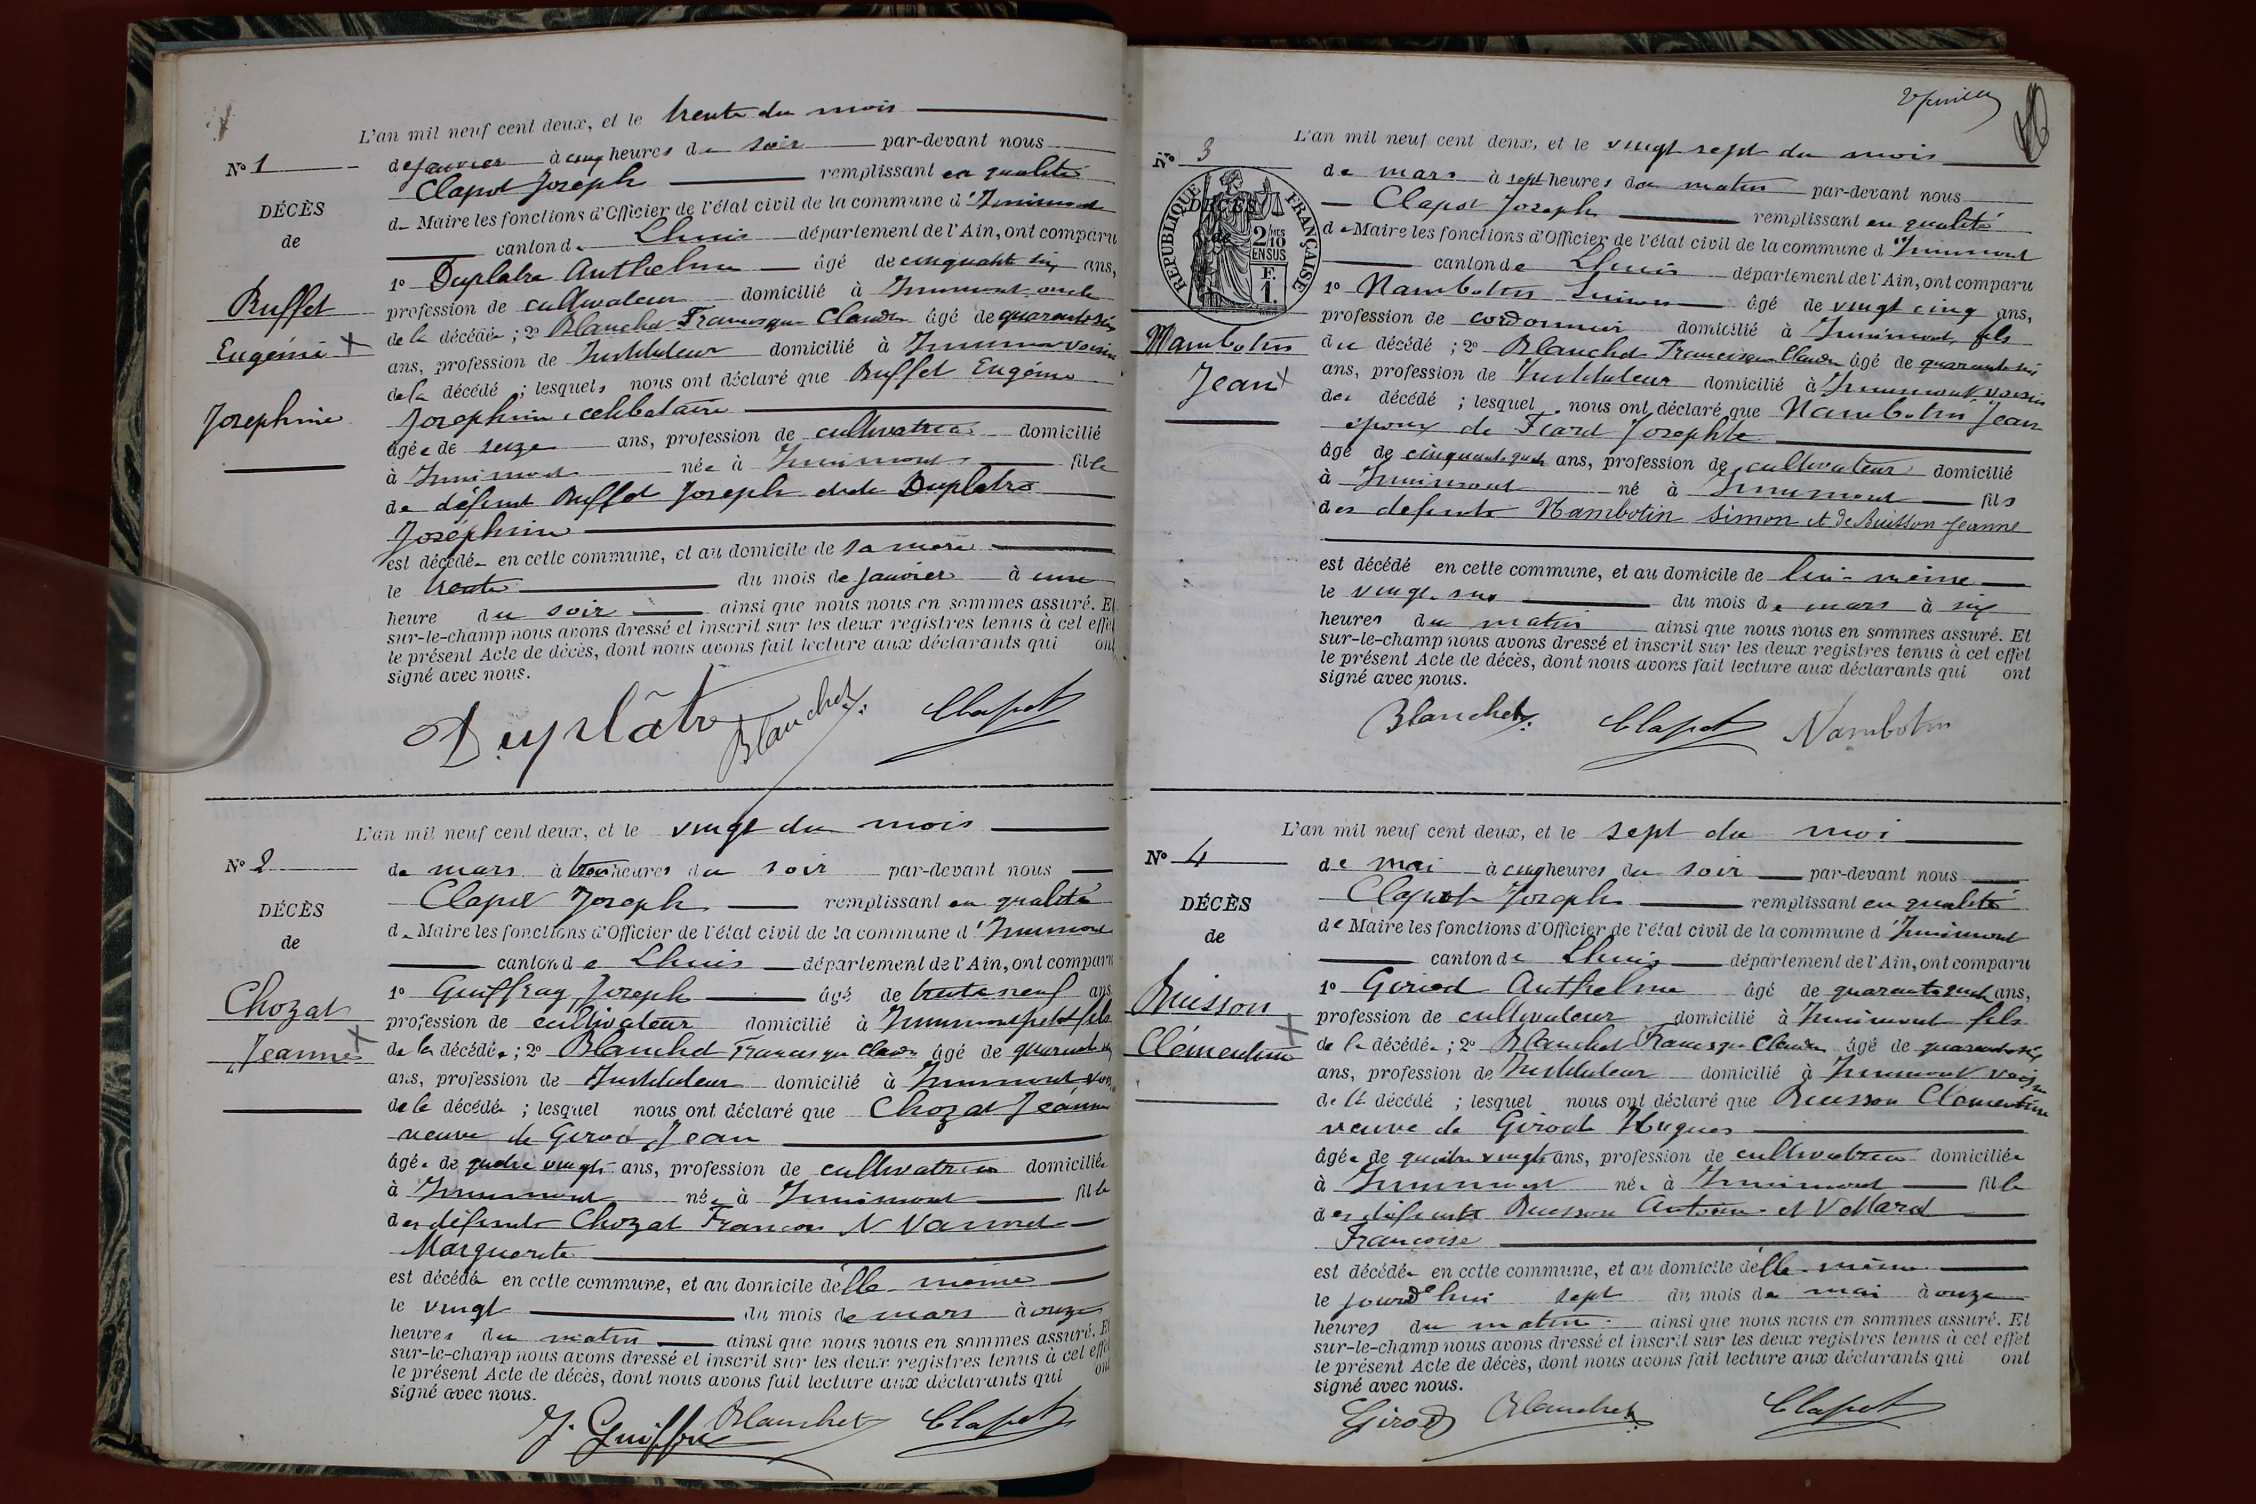 L'an mil neuf cent deux, et le trente du mois
No 1
de janvier à cinq heures du soir par-devant nous
Clapot Joseph remplissant en qualité
DÉCÈS
de Maire les fonctions d'Officier de l'état civil de la commune d'Innimont
de
canton de Lhuis département de l'Ain, ont comparu
1o Duplatre Anthelme âgé de cinquante six ans,
Buffet
profession de cultivateur domicilié à Innimont oncle
de la décédée ; 2o Blanchet Francisque Claude âgé de quarante six
Eugénie
ans, profession de Instituteur domicilié à Innimont voisin
de la décédé ; lesquels nous ont déclaré que Buffet Eugénie
Josephine
Josephine célibataire
âgée de seize ans, profession de cultivatrice domicilié
à Innimont née à Innimont fille
de défunt Buffet Joseph et de Duplatre
Joséphine
est décédée en cette commune, et au domicile de sa mère
le trente du mois de janvier à une
heure du soir ainsi que nous nous en sommes assuré. Et
sur-le-champ nous avons dressé et inscrit sur les deux registres tenus à cet effet
le présent Acte de décès, dont nous avons fait lecture aux déclarants qui ont
signé avec nous.
Duplâtre Blanchet Clapot
L'an mil neuf cent deux, et le vingt du mois
No 2
de mars à trois heures du soir par-devant nous
Clapot Joseph remplissant en qualité
DÉCÈS
de Maire les fonctions d'Officier de l'état civil de la commune d'Innimont
de
canton de Lhuis département de l'Ain, ont comparu
1o Guiffray Joseph âgé de trente neuf ans
Chozat
profession de cultivateur domicilié à Innimont petit fils
Jeanne
de la décédée ; 2o Blanchet Francisque Claude âgé de quarante six
ans, profession de Instituteur domicilié à Innimont
de la décédée ; lesquel nous ont déclaré que Chozat Jeanne
veuve de Girod Jean
âgée de quatre vingts ans, profession de cultivatrice domiciliée
à Innimont née à Innimont fille
des défunts Chozat François
Marguerite
est décédée en cette commune, et au domicile d'elle même
le vingt du mois de mars à onze
heures du matin ainsi que nous nous en sommes assuré. Et
sur-le-champ nous avons dressé et inscrit sur les deux registres tenus à cet effet
le présent Acte de décès, dont nous avons fait lecture aux déclarants qui ont
signé avec nous.
Blanchet Clapot
L'an mil neuf cent deux, et le vingt sept du mois
No 3
de mars à sept heures du matin par-devant nous
DÉCÈS
de
RÉPUBLIQUE FRANÇAISE
2/10 EN SUS
F. 1.
Clapot Joseph remplissant en qualité
de Maire les fonctions d'Officier de l'état civil de la commune d'Innimont
canton de Lhuis département de l'Ain, ont comparu
1o Nambotin Simon âgé de vingt cinq ans,
profession de cordonnier domicilié à Innimont fils
Nambotin
du décédé ; 2o Blanchet Francisque Claude âgé de quarante six
Jean
ans, profession de Instituteur domicilié à Innimont voisin
du décédé ; lesquel nous ont déclaré que Nambotin Jean
époux de Ficard Josephte
âgé de cinquante quatre ans, profession de cultivateur domicilié
à Innimont né à Innimont fils
des defunts Nambotin Simon et de Buisson Jeanne
est décédé en cette commune, et au domicile de lui-même
le vingt six du mois de mars à six
heures du matin ainsi que nous nous en sommes assuré. Et
sur-le-champ nous avons dressé et inscrit sur les deux registres tenus à cet effet
le présent Acte de décès, dont nous avons fait lecture aux déclarants qui ont
signé avec nous.
Blanchet Clapot Nambotin
L'an mil neuf cent deux, et le sept du moi
No 4
de mai à cinq heures du soir par-devant nous
DÉCÈS
Clapot Joseph remplissant en qualité
de
de Maire les fonctions d'Officier de l'état civil de la commune d'Innimont
canton de Lhuis département de l'Ain, ont comparu
Buisson
1o Girod Anthelme âgé de quarante quatre ans,
profession de cultivateur domicilié à Innimont fils
Clémentine
de la décédée ; 2o Blanchet Francisque Claude âgé de quarante six
ans, profession de Instituteur domicilié à Innimont voisin
de la décédé ; lesquel nous ont déclaré que Buisson Clémentine
veuve de Girod Hugues
âgée de quatre vingts ans, profession de cultivatrice domiciliée
à Innimont née à Innimont fille
des défunts Buisson Antoine et Vettard
Françoise
est décédée en cette commune, et au domicile d'elle-même
le jourd'hui sept du mois de mai à onze
heures du matin ainsi que nous nous en sommes assuré. Et
sur-le-champ nous avons dressé et inscrit sur les deux registres tenus à cet effet
le présent Acte de décès, dont nous avons fait lecture aux déclarants qui ont
signé avec nous.
Girod Blanchet Clapot